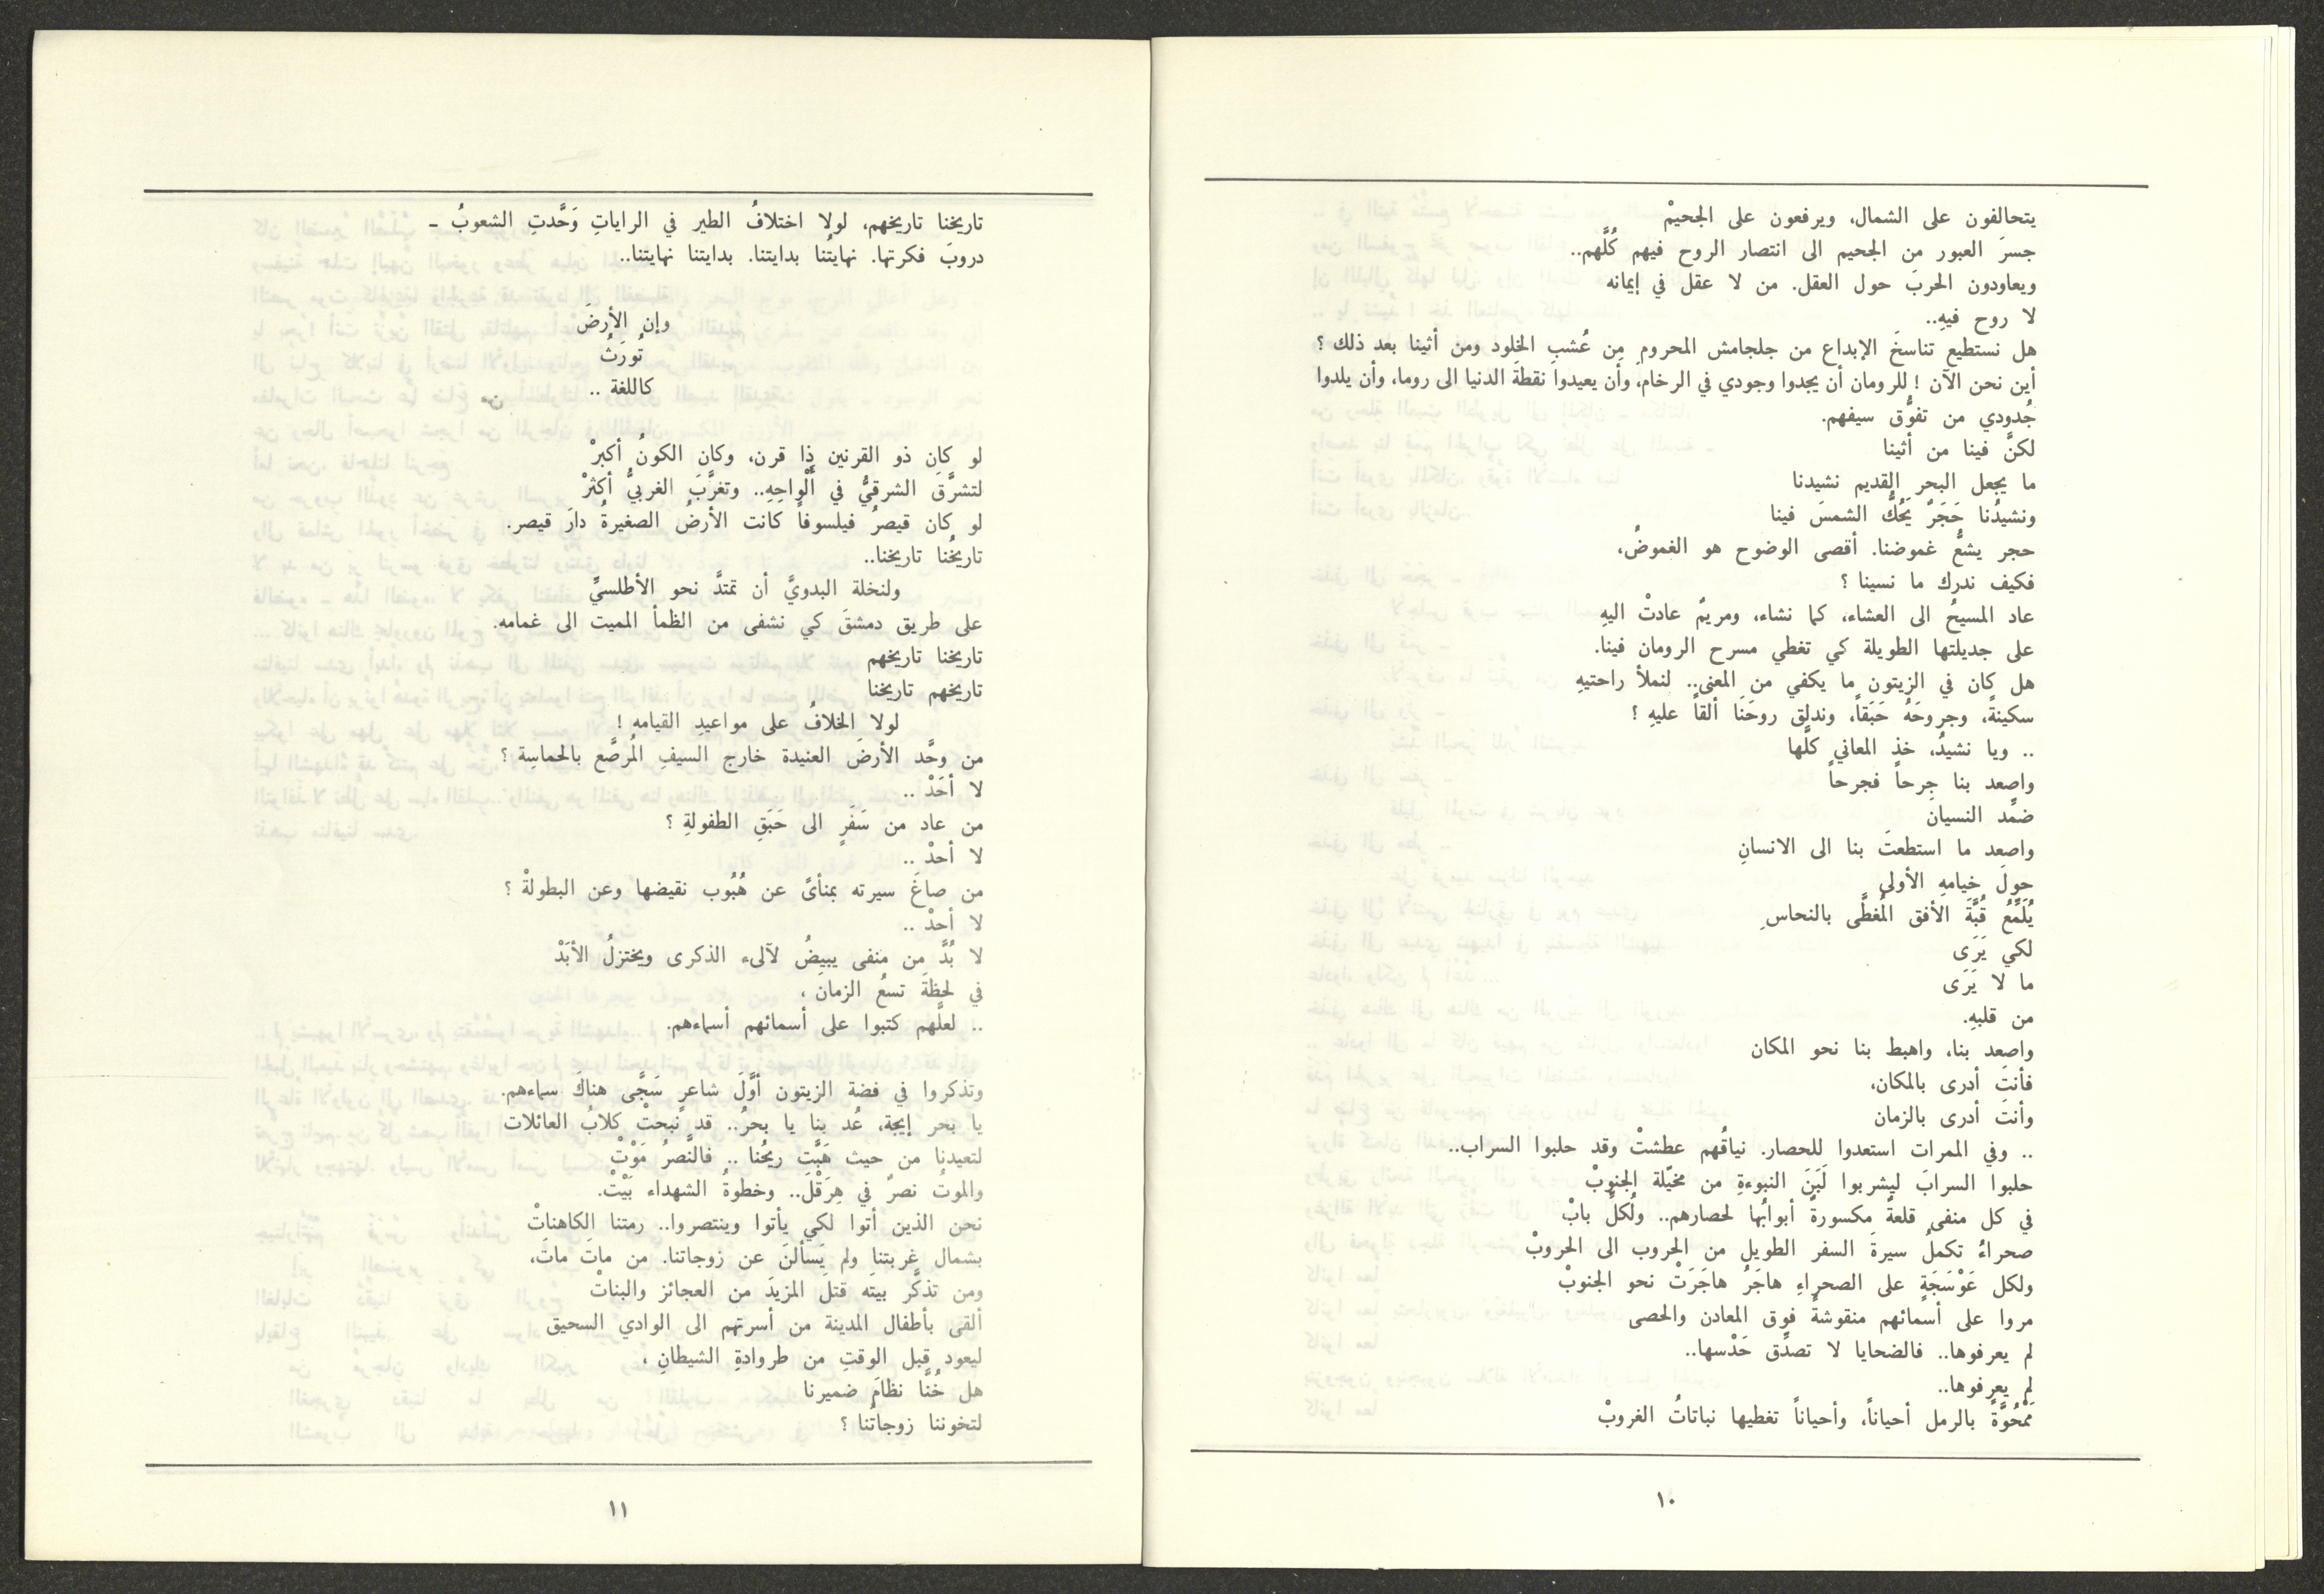 يتحالفون على الشمال، ويرفعون على الجحيمْ
جسرَ العبور من الجحيم الى انتصار الروح فيهم كُلَّهم..
ويعاودون الحربَ حول العقل. من لا عقل في إيمانه
لا روح فيهِ..
هل نستطيع تناسخَ الإبداع من جلجامش المحروم من عُشبِ الخلود ومن أثينا بعد ذلك ؟
أين نحن الآن ! للرومان أن يجدوا وجودي في الرخام، وأن يعيدوا نقطةَ الدنيا الى روما، وأن يلدوا
جُدودي من تفوُّق سيفهم.
لكنَّ فينا من أثينا
ما يجعل البحر القديم نشيدنا
ونشيدُنا حَجَرٌ يَحُكُّ الشمسَ فينا
حجر يشعُّ غموضنا. أقصى الوضوح هو الغموضُ،
فكيف ندرك ما نسينا ؟
عاد المسيحُ الى العشاء، كما نشاء، ومريمُ عادتْ اليهِ
على جديلتها الطويلة كي تغطي مسرح الرومان فينا.
هل كان في الزيتون ما يكفي من المعنى.. لنملأ راحتيهِ
سكينةً، وجروحَهُ حَبَقاً، وندلق روحَنا ألقاً عليهِ ؟
.. ويا نشيدُ، خذ المعاني كلَّها
واصعد بنا جرحاً فجرحاً
ضمِّد النسيانَ
واصعد ما استطعتَ بنا الى الانسانِ
حولَ خيامهِ الأولى
يُلَمِّعُ قُبَّةَ الأفق المُغطَّى بالنحاسِ
لكي يَرَى
ما لا يَرَى
من قلبهِ.
واصعد بنا، واهبط بنا نحو المكان
فأنتَ أدرى بالمكان،
وأنتَ أدرى بالزمان
.. وفي الممرات استعدوا للحصار. نياقُهم عطشتْ وقد حلبوا السراب..
حلبوا السرابَ ليشربوا لَبَنَ النبوءةِ من مخيّلة الجنوبْ
في كل منفى قلعةٌ مكسورةٌ أبوابُها لحصارهم.. ولكلِّ بابْ
صحراءُ تكملُ سيرةَ السفر الطويل من الحروب الى الحروبْ
ولكل عَوْسَجَةٍ على الصحراءِ هاجَرُ هاجَرَتْ نحو الجنوبْ
مروا على أسمائهم منقوشةً فوق المعادن والحصى
لم يعرفوها.. فالضحايا لا تصدِّق حَدْسها..
لم يعرفوها..
مَمْحُوَّةً بالرمل أحياناً، وأحياناً تغطيها نباتاتُ الغروبْ
١٠
تاريخنا تاريخهم، لولا اختلافُ الطير في الراياتِ وَحَّدتِ الشعوبُ ـ
دروبَ فكرتها. نهايتُنا بدايتنا. بدايتنا نهايتنا..
وإن الأرضَ
تُورَثُ
كاللغة ..
لو كان ذو القرنين ذا قرن، وكان الكونُ أكبرْ
لتشرَّقَ الشرقيُّ في ألْواحِهِ.. وتغرَّبَ الغربيُّ أكثرْ
لو كان قيصرُ فيلسوفاً كانت الأرضُ الصغيرةُ دارَ قيصر.
تاريخُنا تاريخنا..
ولنخلة البدويِّ أن تمتدَّ نحو الأطلسيِّ
على طريق دمشقَ كي نشفى من الظمأ المميت الى غمامه.
تاريخنا تاريخهم
تاريخهم تاريخنا
لولا الخلافُ على مواعيدِ القيامه !
من وحَّد الأرضَ العنيدة خارج السيفِ المُرصَّع بالحماسِة ؟
لا أحَدْ ..
من عاد من سَفَرٍ الى حَبَقِ الطفولةِ ؟
لا أحدْ ..
من صاغَ سيرته بمنأىً عن هُبُوب نقيضها وعن البطولةْ ؟
لا أحدْ ..
لا بُدَّ من منفى يبيضُ لآلىء الذكرى ويختزلُ الأبَدْ
في لحظةَ تسعُ الزمان ،
.. لعلَّهم كتبوا على أسمائهم أسماءهم.
وتذكروا في فضة الزيتون أوَّلَ شاعرٍ سَجَّى هناكَ سماءهم.
يا بحر إيجة، عُد بنا يا بحرُ.. قد نبحتْ كلابُ العائلات
لتعيدنا من حيث هَبَّتِ ريحُنا .. فالنَّصرُ مَوْتْ
والموتُ نصرٌ في هِرَقْلَ.. وخطوةُ الشهداء بَيْتْ.
نحن الذين أتوا لكي يأتوا وينتصروا.. رمتنا الكاهناتْ
بشمال غربتنا ولم يَسألنَ عن زوجاتنا. من ماتَ ماتَ،
ومن تذكَّر بيتَه قتلَ المزيدَ من العجائز والبناتْ
ألقى بأطفال المدينة من أسرتهم الى الوادي السحيق
ليعود قبل الوقتِ من طروادةِ الشيطانِ ،
هل خُنَّا نظامَ ضميرنا
لتخوننا زوجاتُنا ؟
١١